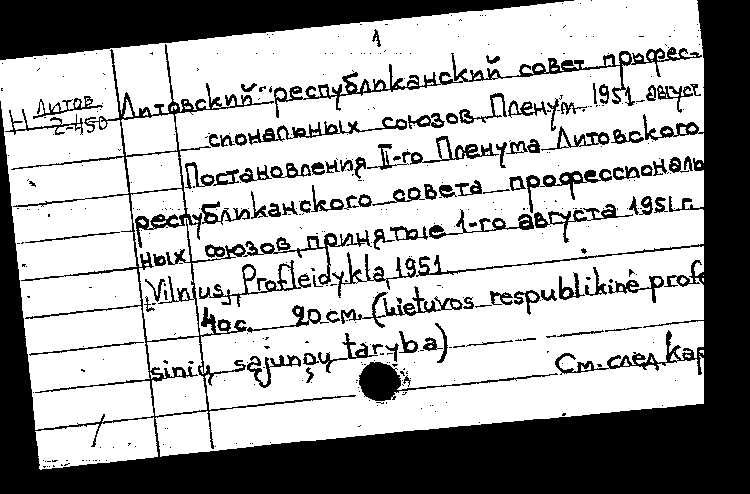 1
Н Литов
2-450
Литовский республиканский совет профес-
сиональных союзов. Пленум. 1951 август
Постановления II-го Пленума Литовского
республиканского совета профессиональ
ных союзов, принятые 1-го августа 1951 г.
[Vilnius], Profleidykla, 1951.
40 с. 20 см. (Lietuvos respublikinė profe
sinių sąjungų taryba)
См. след. кар